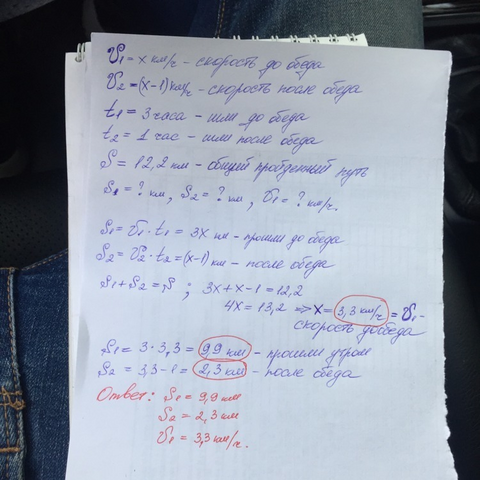 V1 = x км/ч - скорость до обеда
V2 = (x-1) км/ч - скорость после обеда
t1 = 3 часа - шли до обеда
t2 = 1 час - шли после обеда
S = 12,2 км - общий пройденный путь
S1 = ? км, S2 = ? км, V1 = ? км/ч.
S1 = V1 · t1 = 3x км - прошли до обеда
S2 = V2 · t2 = (x-1) км - после обеда
S1 + S2 = S ; 3x + x - 1 = 12,2
4x = 13,2 => x = 3,3 км/ч = V1 -
скорость до обеда
S1 = 3 · 3,3 = 9,9 км - прошли утром
S2 = 3,3 - 1 = 2,3 км - после обеда
Ответ: S1 = 9,9 км
S2 = 2,3 км
V1 = 3,3 км/ч.